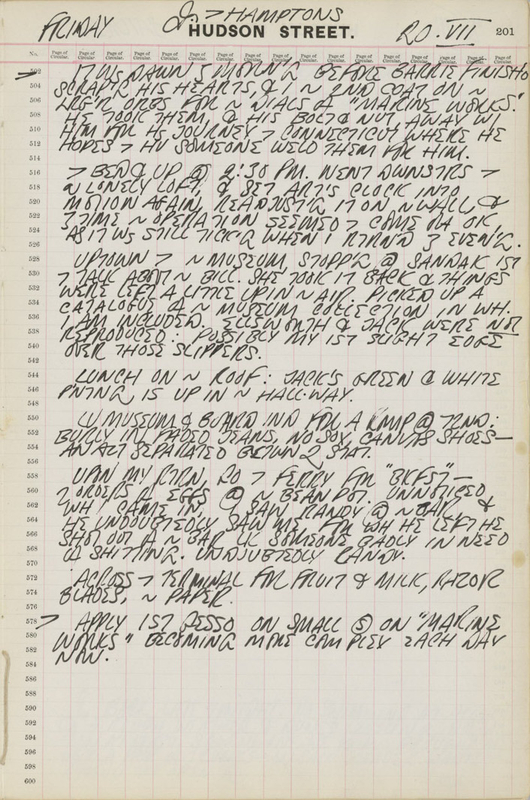 FRIDAY J. > HAMPTONS 20. VII
HUDSON STREET. 201
No. Page of Circular. Page of Circular. Page of Circular. Page of Circular. Page of Circular. Page of Circular. Page of Circular. Page of Circular. Page of Circular. Page of Circular. Page of Circular. Page of Circular. Page of Circular. Page of Circular. Page of Circular. Page of Circular.
502 IT WS DAWN & BEFORE BARRIE FINISHD
504 SCRAP'G HIS HEARTS, & I ~ 2ND COAT ON ~
506 LRG'R ONES FOR ~ DIALS OF "MARINE WORKS."
508 HE TOOK THEM, & HIS BOLT & NUT AWAY W/
510 HIM FOR HS JOURNEY > CONNECTICUT WHERE HE
512 HOPES > HV SOMEONE WELD THEM FOR HIM.
514
516 > BED & UP @ 2:30 PM. WENT DOWNSTRS >
518 ~ LONELY LOFT, & SET ART'S CLOCK INTO
520 MOTION AGAIN, READJUST'G IT ON ~ WALL, &
522 THIS TIME ~ OPERATION SEEMED > COME OFF OK
524 AS IT WS STILL TICK'G WHEN I RTRN'D > EVEN'G.
526
528 UPTOWN > ~ MUSEUM, STOPP'G @ SANDAK 1ST
530 > TALK ABOT ~ BILL. SHE TOOK IT BACK & THINGS
532 WERE LEFT A LITTLE UP IN ~ AIR. PICKED UP A
534 CATALOGUE OF ~ MUSEUM COLLECTION IN WH.
536 I AM INCLUDED, ELLSWORTH & JACK WERE NOT
538 REPRODUCED: POSSIBLY MY 1ST SLIGHT EDGE
540 OVER THOSE SLIPPERS.
542
544 LUNCH ON ~ ROOF: JACK'S GREEN & WHITE
546 PNT'NG IS UP IN ~ HALL-WAY.
548
550 LV MUSEUM & BOARD IND FOR A ROMP @ 72ND:
552 BURLY IN FADED JEANS, NO SOX, CANVAS SHOES—
554 AN ACT SEPARATED BETWN 2 STAT.
556
558 UPON MY RTRN, GO > FERRY FOR "BKFST"—
560 2 ORDERS OF EGGS @ ~ BEAN POT. UNNOTICED
562 WH I CAME IN, I SAW RANDY @ ~ BAR &
564 HE UNDOUBTEDLY SAW ME, FOR WH HE LEFT HE
566 SHOT OUT OF ~ BAR LK SOMEONE BADLY IN NEED
568 OF SHITTING. UNDOUBTEDLY RANDY.
570
572 ACROSS > TERMINAL FOR FRUIT & MILK, RAZOR
574 BLADES, ~ PAPER.
576
578 > APPLY 1ST GESSO ON SMALL 5 ON "MARINE
580 WORKS" BECOMING MORE COMPLEX EACH DAY
582 NOW.
584
586
588
590
592
594
596
598
600